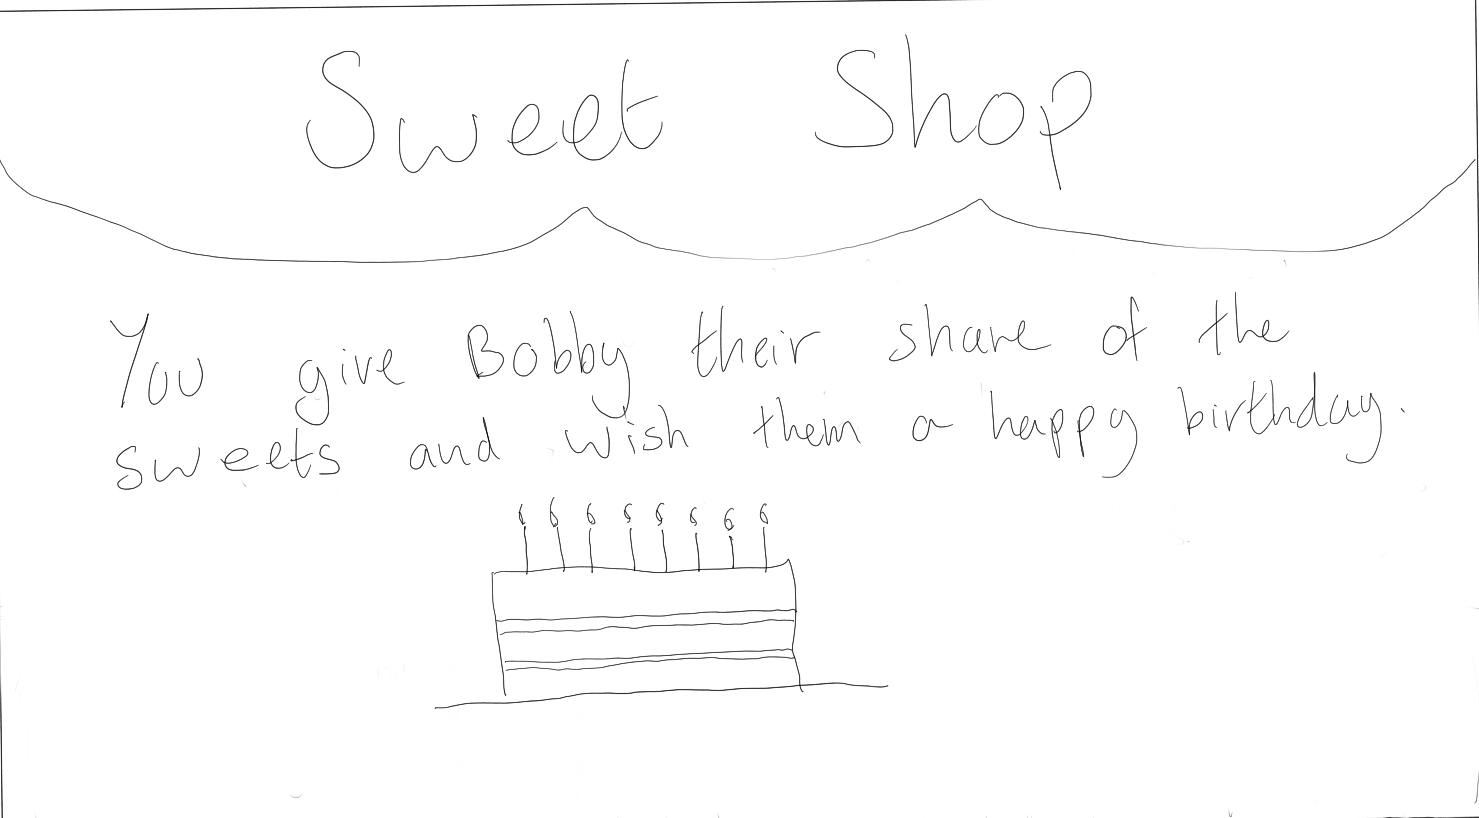 Sweet Shop
You give Bobby their share of the
sweets and wish them a happy birthday.